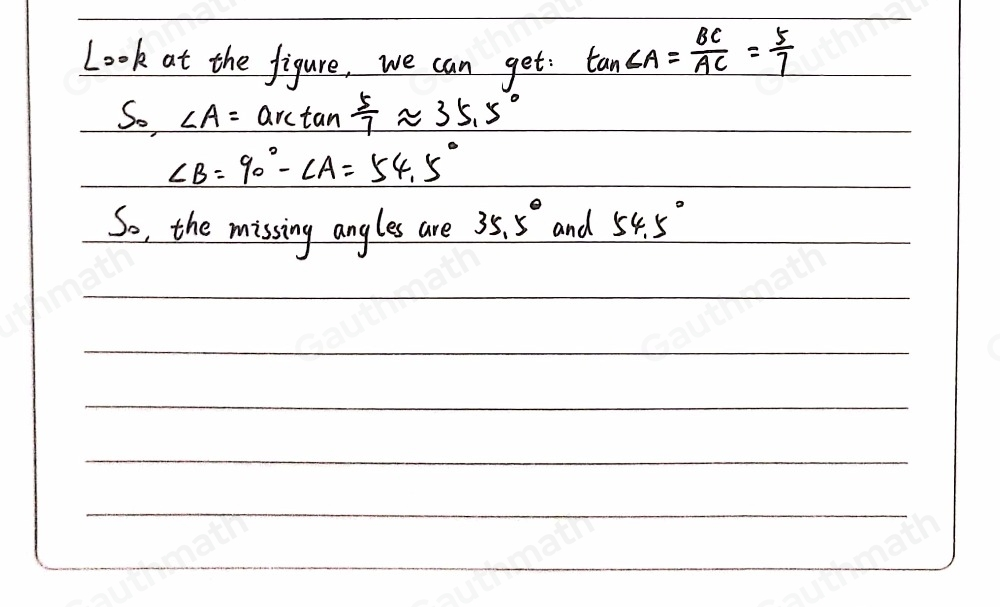 Look at the figure, we can get: tan∠A = BC/AC = 5/7
So, ∠A = arctan 5/7 ≈ 35.5°
∠B = 90° - ∠A = 54.5°
So, the missing angles are 35.5° and 54.5°
Gauthmath